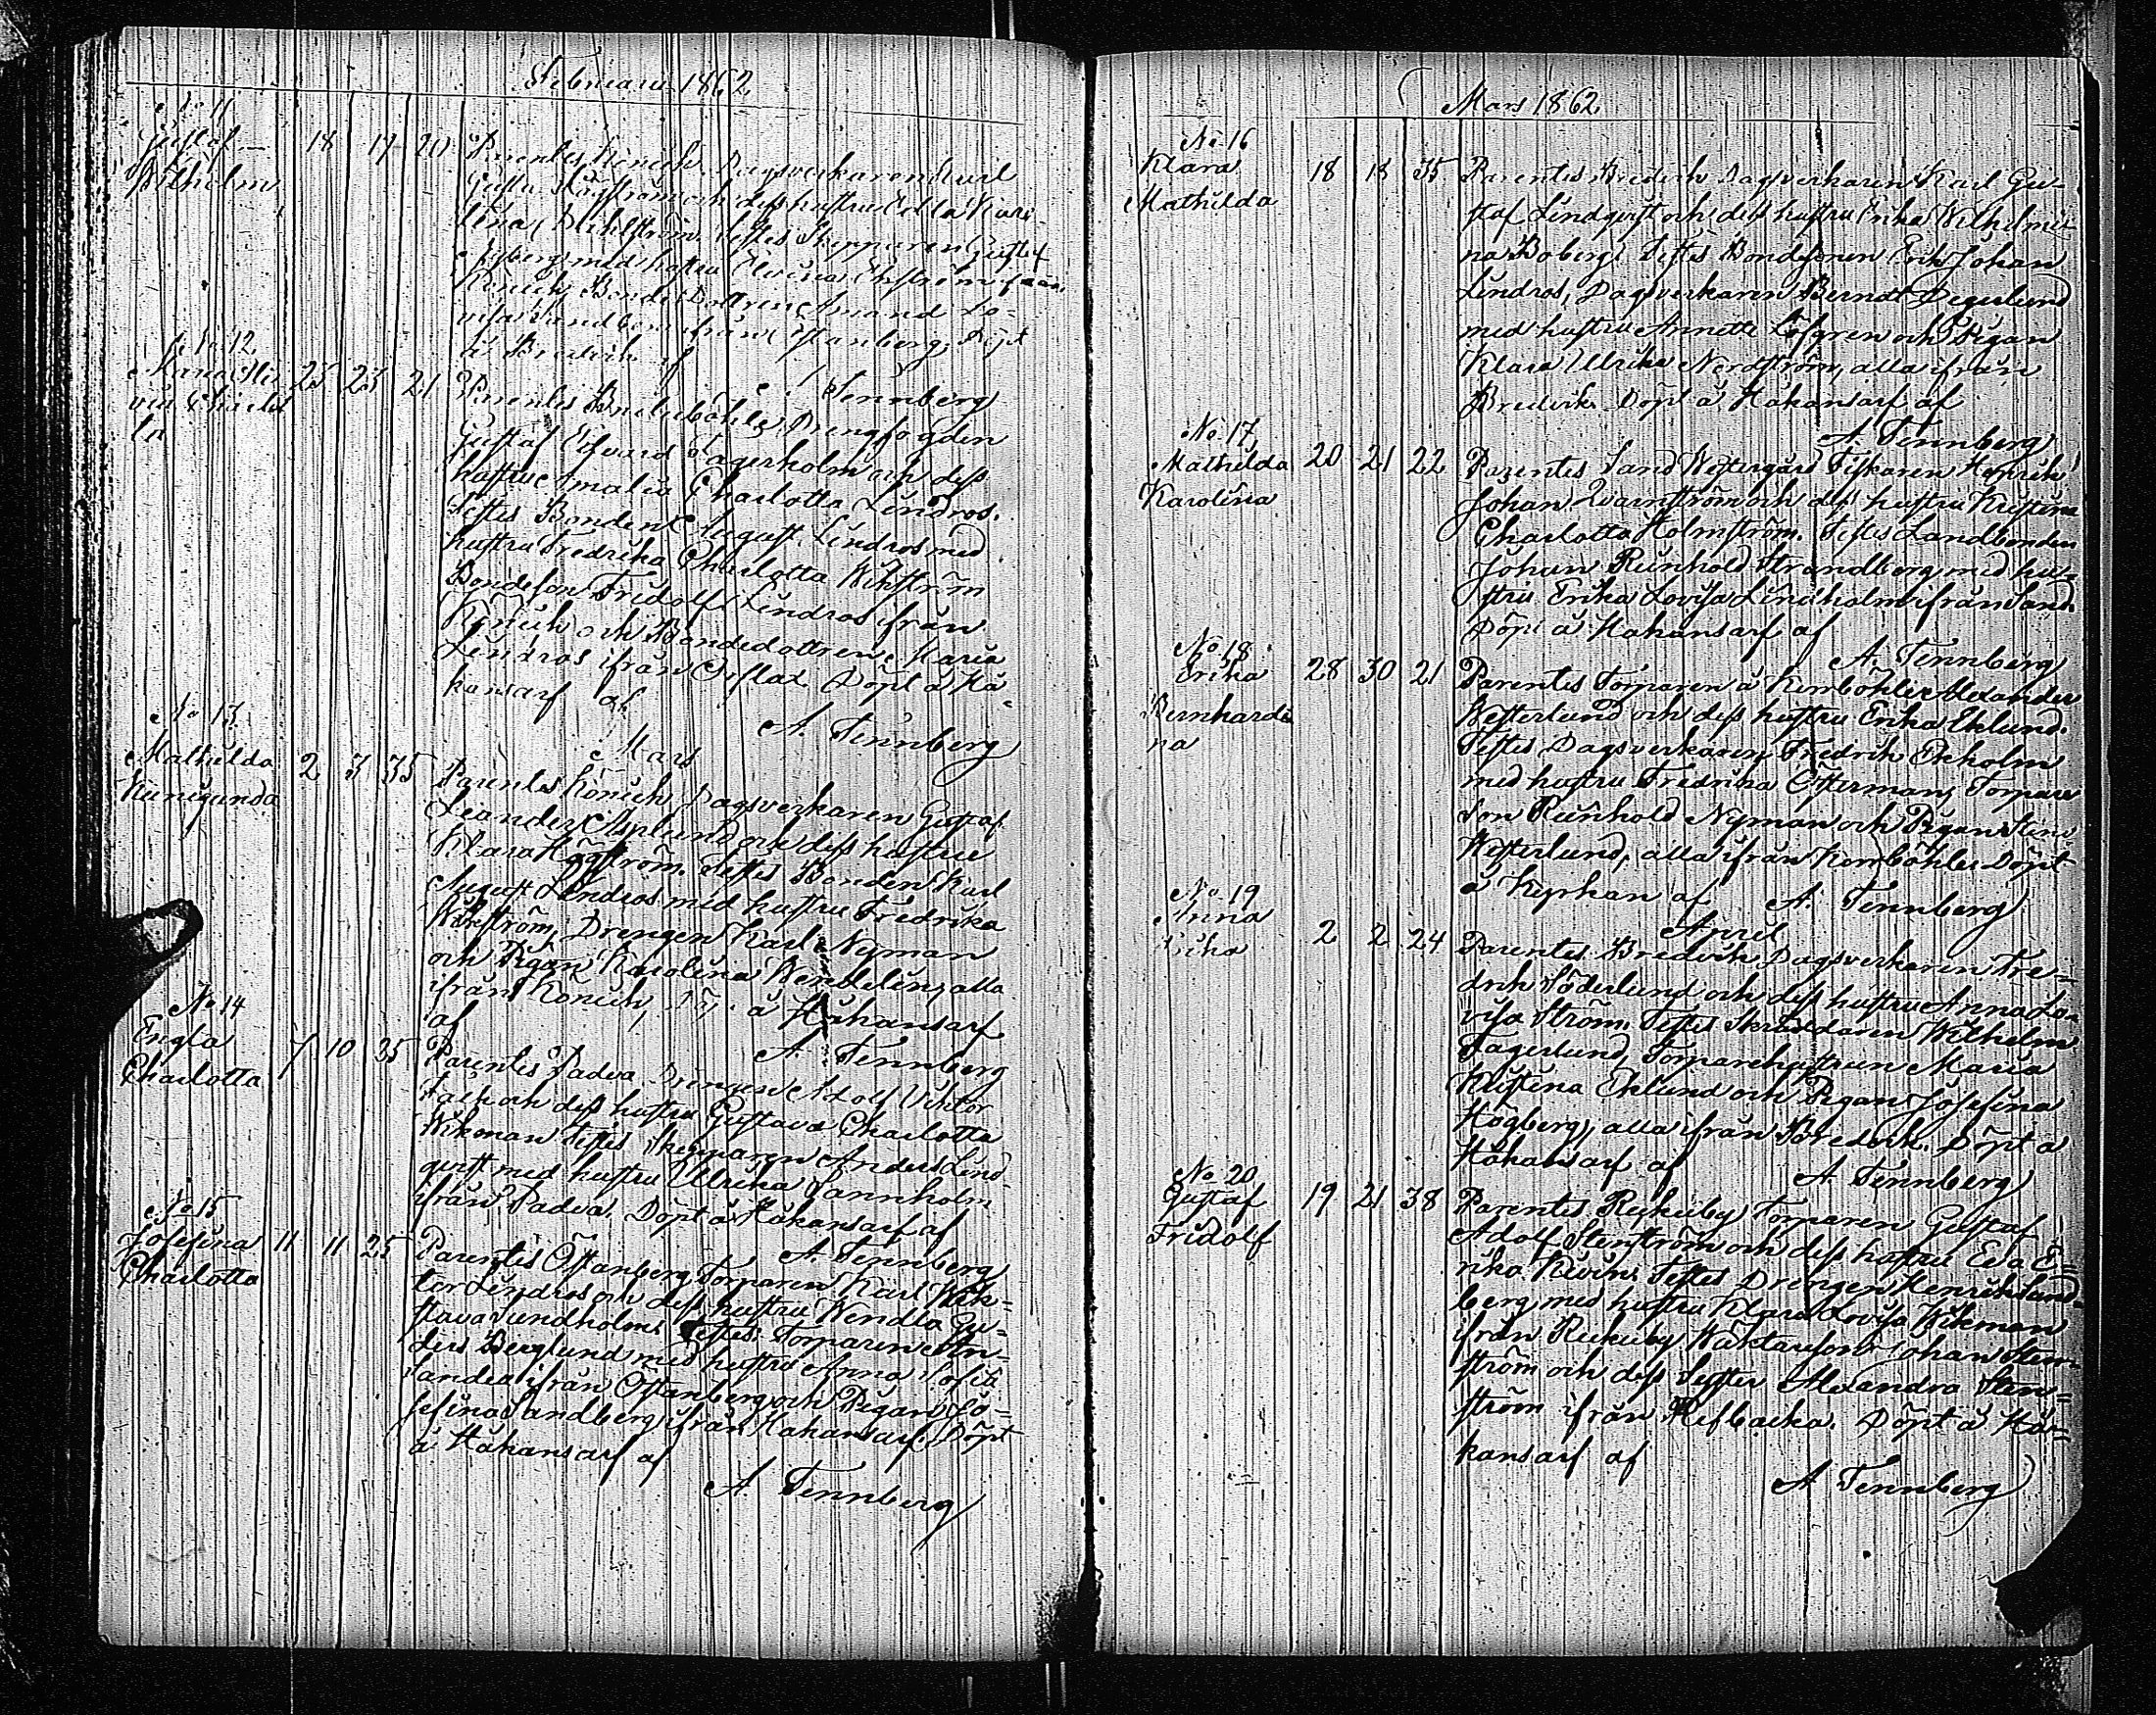 Februari 1862
No 11
Gustaf 18 17 20 Parentes Könich Dagsverkaren Karl
Wilhelm Gustaf Högström och dess hustru Edla Karo-
lina Dahlström. Testes Skepparen Gustaf
med hustru Ekström från
Könich, Bonde Dottren Amanda Lo-
visa Sandberg ifrån Östanberg, Döpt
å Bredvik af
Tennberg
No 12
Maria 25 23 21 Parentes Drengfogden
Gustaf Edvard Fagerholm och dess
la hustru Amalia Charlotta Lindros.
Testes Bonden August Lindros med
hustru Fredrika Charlotta Wikström
Bondeson Fridolf Lindros ifrån
Könich och Bondedottren Maria
Lindros ifrån Orslax Döpt å Hå-
kansarf af
A. Tennberg
Mars
No 13
Mathilda 2 3 35 Parentes Könich Dagsverkaren Gustaf
Kunigunda Leander Asplund och dess hustru
Klara Högström. Testes Bonden Karl
August Lindros med hustru Fredrika
Wikström, Drengen Karl Nyman
och Pigan Karolina Wendelin, alla
ifrån Könich, Döp: å Håkansarf
af
A. Tennberg
No 14
Engla 7 10 35 Parentes Padva Drengen Adolf Viktor
Charlotta Falk och dess hustru Gustava Charlotta
Wikman Testes Skepparen Anders Lind-
qvist med hustru Ulrika Sannholm
ifrån Padva. Döpt å Håkansarf af
A. Tennberg
No 15
Josefina 11 11 25 Parentes Östanberg Torparen Karl Wik-
Charlotta tor Lindros och dess hustru Wendla Gu-
stava Sundholm. Testes: Torparen An-
ders Berglund med hustru Anna Sofia
Sandell ifrån Östanberg och Pigan Jo-
sefina Sandberg ifrån Håkansarf, Döpt
å Håkansarf af
A. Tennberg
Mars 1862
No 16
Klara 18 18 35 Parentes Bredvik Dagsverkaren Karl Gu-
Mathilda staf Lindqvist och dess hustru Erika Wilhelmi-
na Boberg. Testes Bondesonen Erik Johan
Lindros, Dagsverkaren Berndt Degerlund
med hustru Annette Löfgren och Pigan
Klara Ulrika Nordström, alla ifrån
Bredvik Döpt å Håkansarf af
A. Tennberg
No 17
Mathilda 20 21 22 Parentes Sand Westergård Fiskaren Henrik
Karolina Johan Qvarnström och dess hustru Kristina
Charlotta Holmström. Testes Landbonden
Johan Reinhold Strandberg med hu-
stru Erika Lovisa Lindholm ifrån Sand
Döpt å Håkansarf af
A. Tennberg
No 18
Erika 28 30 21 Parentes Torparen å Kimböhle Alexander
Bernhardi Westerlund och dess hustru Erika Eklund.
na Testes Dagsverkaren Fredrik Ekholm
med hustru Fredrika Österman, Torpare
son Reinhold Nyman och Pigan Stina
Westerlund, alla ifrån Kimböhle Döpt
å Kyrkan af A. Tennberg
April
No 19
Anna 2 2 24 Parentes Bredvik Dagsverkaren Fre-
Erika drik Söderlund och dess hustru Anna Lo-
visa Ström. Testes Skräddaren Wilhelm
Fagerlund, Torparehustrun Maria
Kristina Eklund och Pigan Josefina
Högberg, alla ifrån Bredvik. Döpt å
Håkansarf af A. Tennberg
No 20
Gustaf 19 21 38 Parentes Rejkuby Torparen Gustaf
Fridolf Adolf Stenström och dess hustru Eva E-
rika Testes Drengen Henrik Sund-
berg med hustru Klara Lovisa Wikman
ifrån Wäktareson Johan Sten-
ström och dess Syster Alexandra Sten-
ström ifrån Refbacka. Döpt å Hå-
kansarf af
A Tennberg